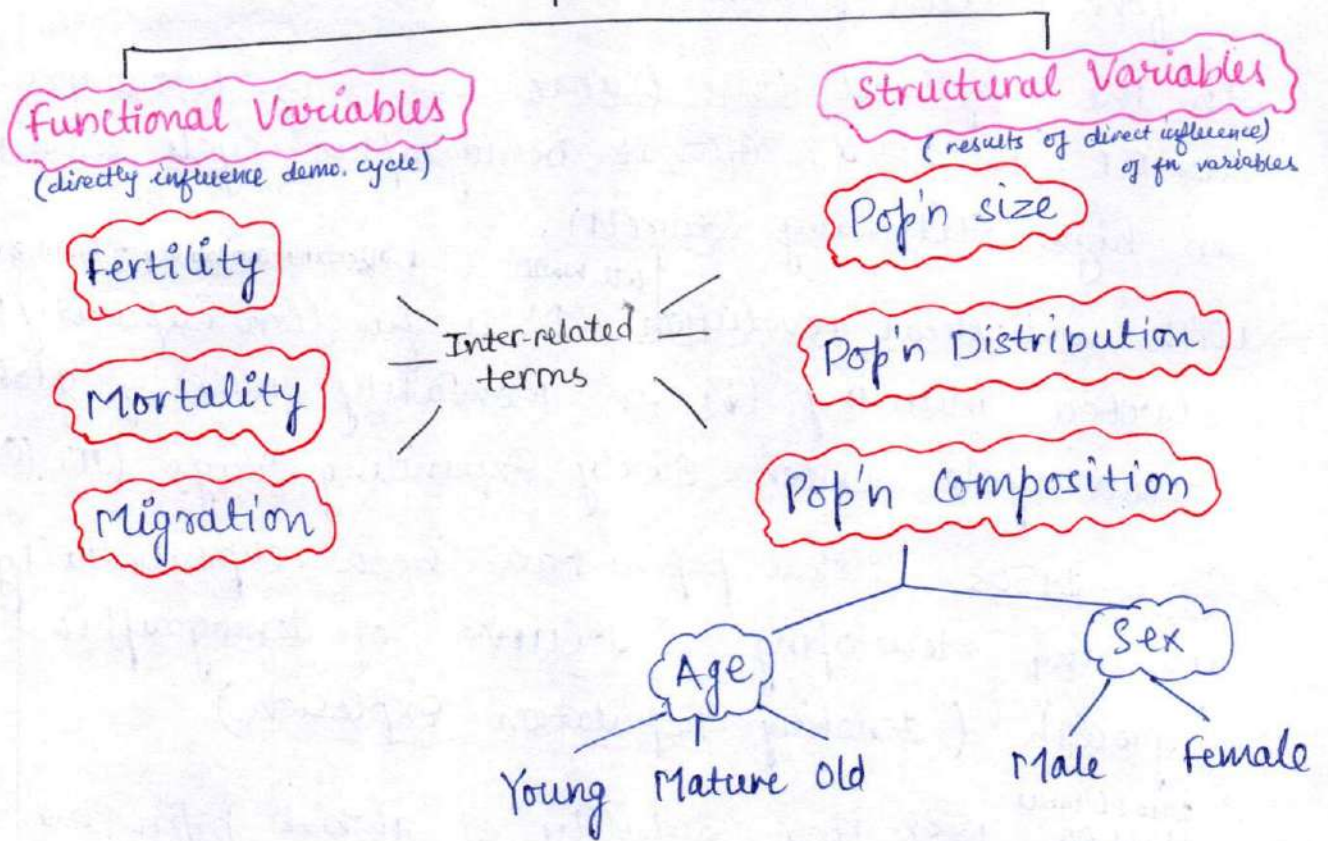 Functional Variables
(directly influence demo. cycle)
Fertility
Mortality
Migration
Inter-related
terms
Structural Variables
(results of direct influence)
of fn variables
Pop'n size
Pop'n Distribution
Pop'n Composition
Age
Sex
Young Mature Old
Male Female